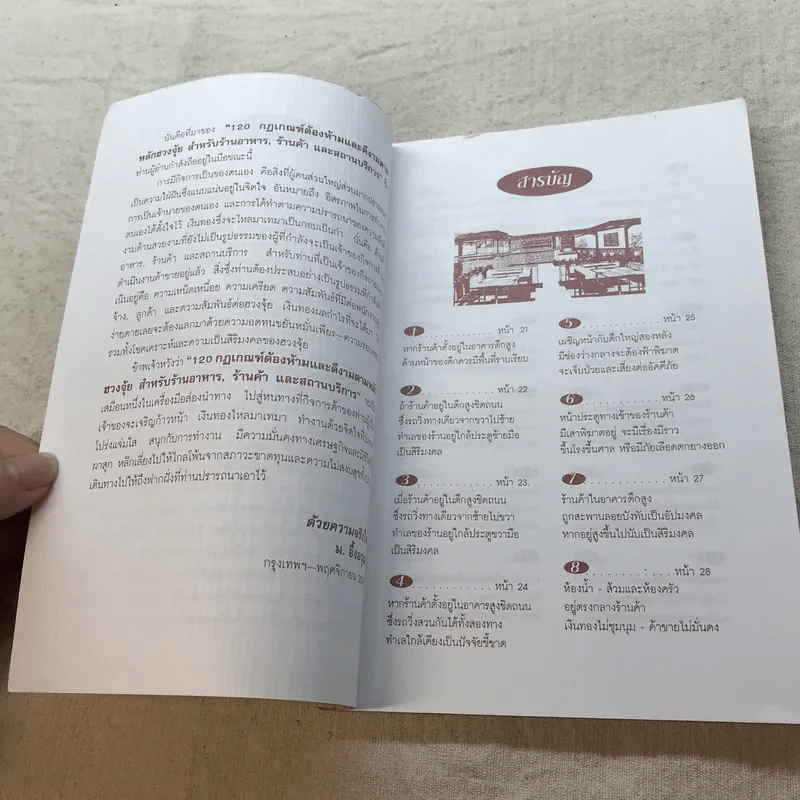 นั่นคือที่มาของ "120 กฎเกณฑ์ต้องห้ามและดีงามตาม
หลักฮวงจุ้ย สำหรับร้านอาหาร, ร้านค้า และสถานบริการ"
ท่านผู้อ่านกำลังถืออยู่ในมือขณะนี้
การมีกิจการเป็นของตนเอง คือสิ่งที่ผู้คนส่วนใหญ่ส่วนมาก
เป็นความใฝ่ฝันซึ่งแนบแน่นอยู่ในจิตใจ อันหมายถึง อิสรภาพในการ
การเป็นเจ้านายของตนเอง และการได้ทำตามความปรารถนาของ
ตนเองได้ตั้งใจไว้ เงินทองซึ่งจะไหลมาเทมาเป็นกอบเป็นกำ นั่นคือ
งามด้านสวยงามที่ยังไม่เป็นรูปธรรมของผู้ที่กำลังจะเป็นเจ้าของกิจการ
อาหาร, ร้านค้า และสถานบริการ สำหรับท่านที่เป็นเจ้าของกิจการ
ดำเนินงานค้าขายอยู่แล้ว สิ่งซึ่งท่านต้องประสบอย่างเป็นรูปธรรมที่กำลัง
เนินอยู่คือ ความเหน็ดเหนื่อย ความเครียด ความสัมพันธ์ที่มีต่อพนักงาน
จ้าง, ลูกค้า และความสัมพันธ์ต่อฮวงจุ้ย เงินทองผลกำไรที่จะได้มา
ง่ายดายเลยจะต้องแลกมาด้วยความอดทนขยันหมั่นเพียร—ความรอบคอบ
รวมทั้งโชคเคราะห์และความเป็นสิริมงคลของฮวงจุ้ย
ข้าพเจ้าหวังว่า "120 กฎเกณฑ์ต้องห้ามและดีงามตามหลัก
ฮวงจุ้ย สำหรับร้านอาหาร, ร้านค้า และสถานบริการ"
เสมือนหนึ่งในเครื่องมือส่องนำทาง ไปสู่หนทางที่กิจการค้าของท่าน
เจ้าของจะเจริญก้าวหน้า เงินทองไหลมาเทมา ทำงานด้วยจิตใจที่
โปร่งแจ่มใส สนุกกับการทำงาน มีความมั่นคงทางเศรษฐกิจและมี
ผาสุก หลีกเลี่ยงไปให้ไกลโพ้นจากสภาวะขาดทุนและความไม่สงบสุข
เดินทางไปให้ถึงฟากฝั่งที่ท่านปรารถนาเอาไว้
ด้วยความจริงใจ
ม. อึ้งอรุณ
กรุงเทพฯ—พฤศจิกายน
สารบัญ
1 หน้า 21
หากร้านค้าตั้งอยู่ในอาคารตึกสูง
ด้านหน้าของตึกควรมีพื้นที่ราบเรียบ
2 หน้า 22
ถ้าร้านค้าอยู่ในตึกสูงชิดถนน
ซึ่งรถวิ่งทางเดียวจากขวาไปซ้าย
ทำเลของร้านอยู่ใกล้ประตูซ้ายมือ
เป็นสิริมงคล
3 หน้า 23
เมื่อร้านค้าอยู่ในตึกสูงชิดถนน
ซึ่งรถวิ่งทางเดียวจากซ้ายไปขวา
ทำเลของร้านอยู่ใกล้ประตูขวามือ
เป็นสิริมงคล
4 หน้า 24
หากร้านค้าตั้งอยู่ในอาคารสูงชิดถนน
ซึ่งรถวิ่งสวนกันได้ทั้งสองทาง
ทำเลใกล้เคียงเป็นปัจจัยชี้ขาด
5 หน้า 25
เผชิญหน้ากับตึกใหญ่สองหลัง
มีช่องว่างกลางจะต้องฟ้าพิฆาต
จะเจ็บป่วยและเสี่ยงต่ออัคคีภัย
6 หน้า 26
หน้าประตูทางเข้าของร้านค้า
มีเสาพิฆาตอยู่ จะมีเรื่องมีราว
ขึ้นโรงขึ้นศาล หรือมีภัยเลือดตกยางออก
7 หน้า 27
ร้านค้าในอาคารตึกสูง
ถูกสะพานลอยบังทับเป็นอัปมงคล
หากอยู่สูงขึ้นไปนับเป็นสิริมงคล
8 หน้า 28
ห้องน้ำ - ส้วมและห้องครัว
อยู่ตรงกลางร้านค้า
เงินทองไม่ชุมนุม - ค้าขายไม่มั่นคง